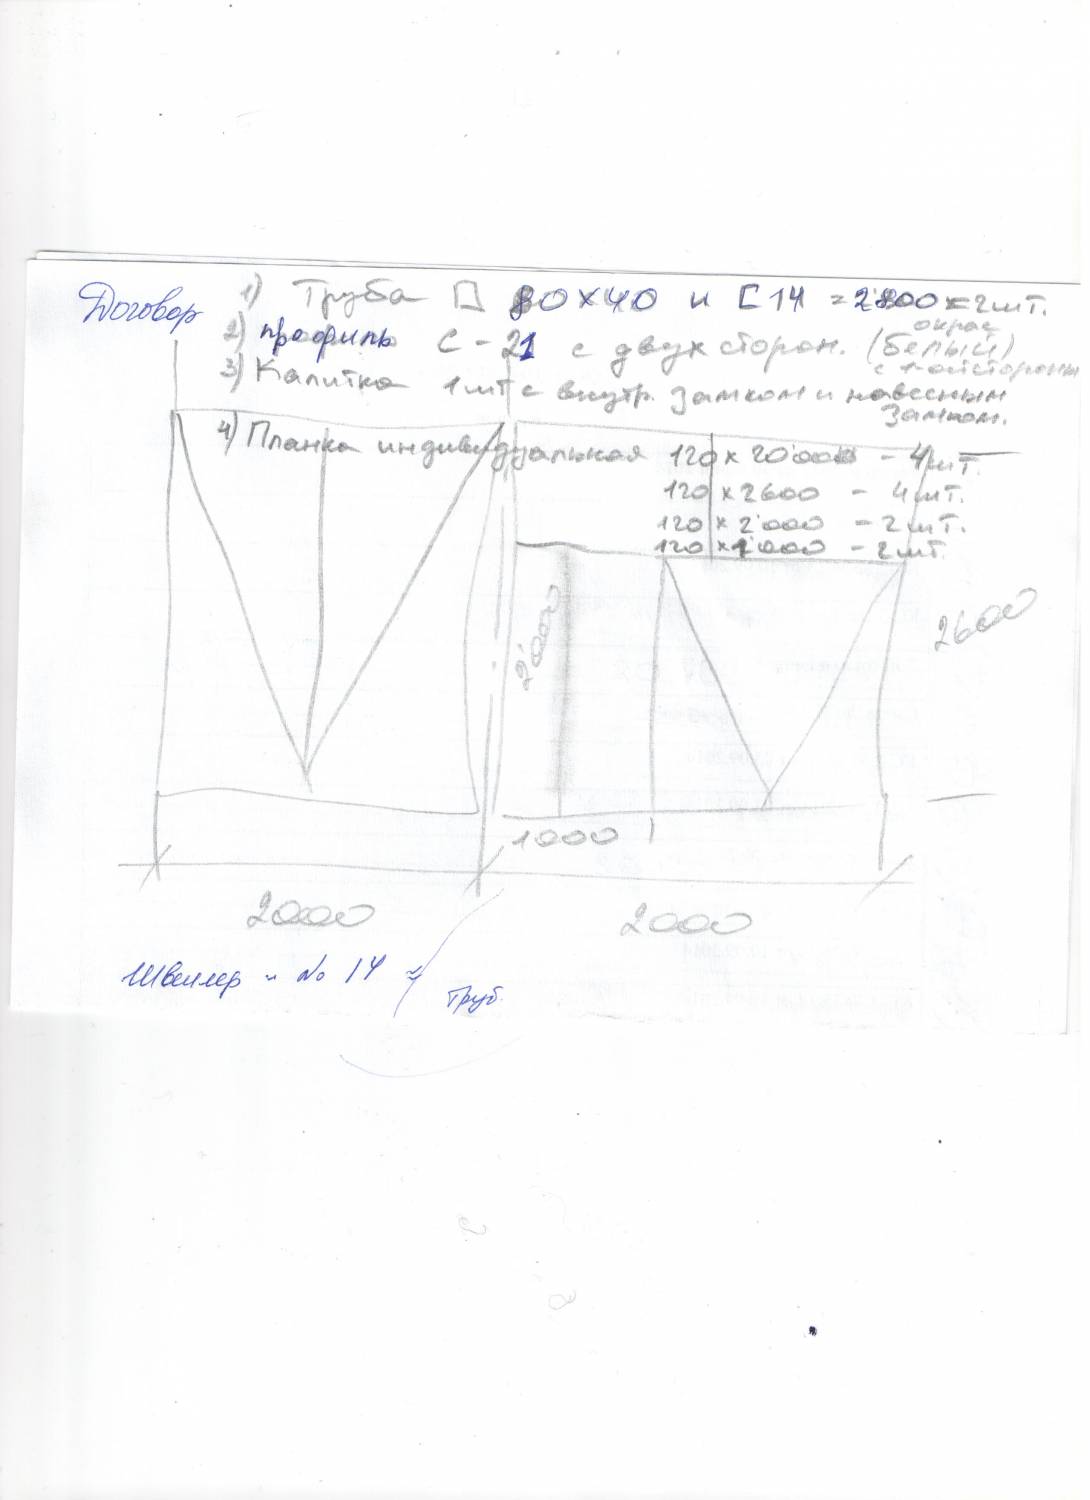 Договор
1) Труба П 80х40 и [ 14 = 2'800 = 2 шт.
2) профиль С-21 с двух сторон. (белый)
окрас
с 1-ой стороны
3) Калитка 1шт с внутр. замком и навесным
замком.
4) Планка индивидуальная 120 х 20'000 - 4 шт.
120 х 2600 - 4 шт.
120 х 2'000 - 2 шт.
120 х 1'000 - 2 шт.
2'000
2600
1000
2000
2000
Швеллер № 14
Труб.